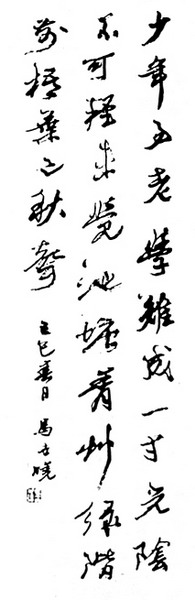 少年易老學難成一寸光陰
不可輕未覺池塘春草綠階
前梧葉已秋聲
巳春日 馬